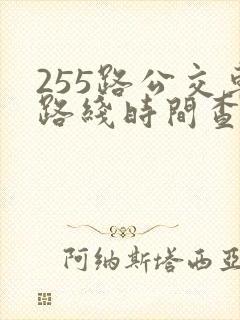 255路公交車
路綫時間查
阿纳斯塔西亚